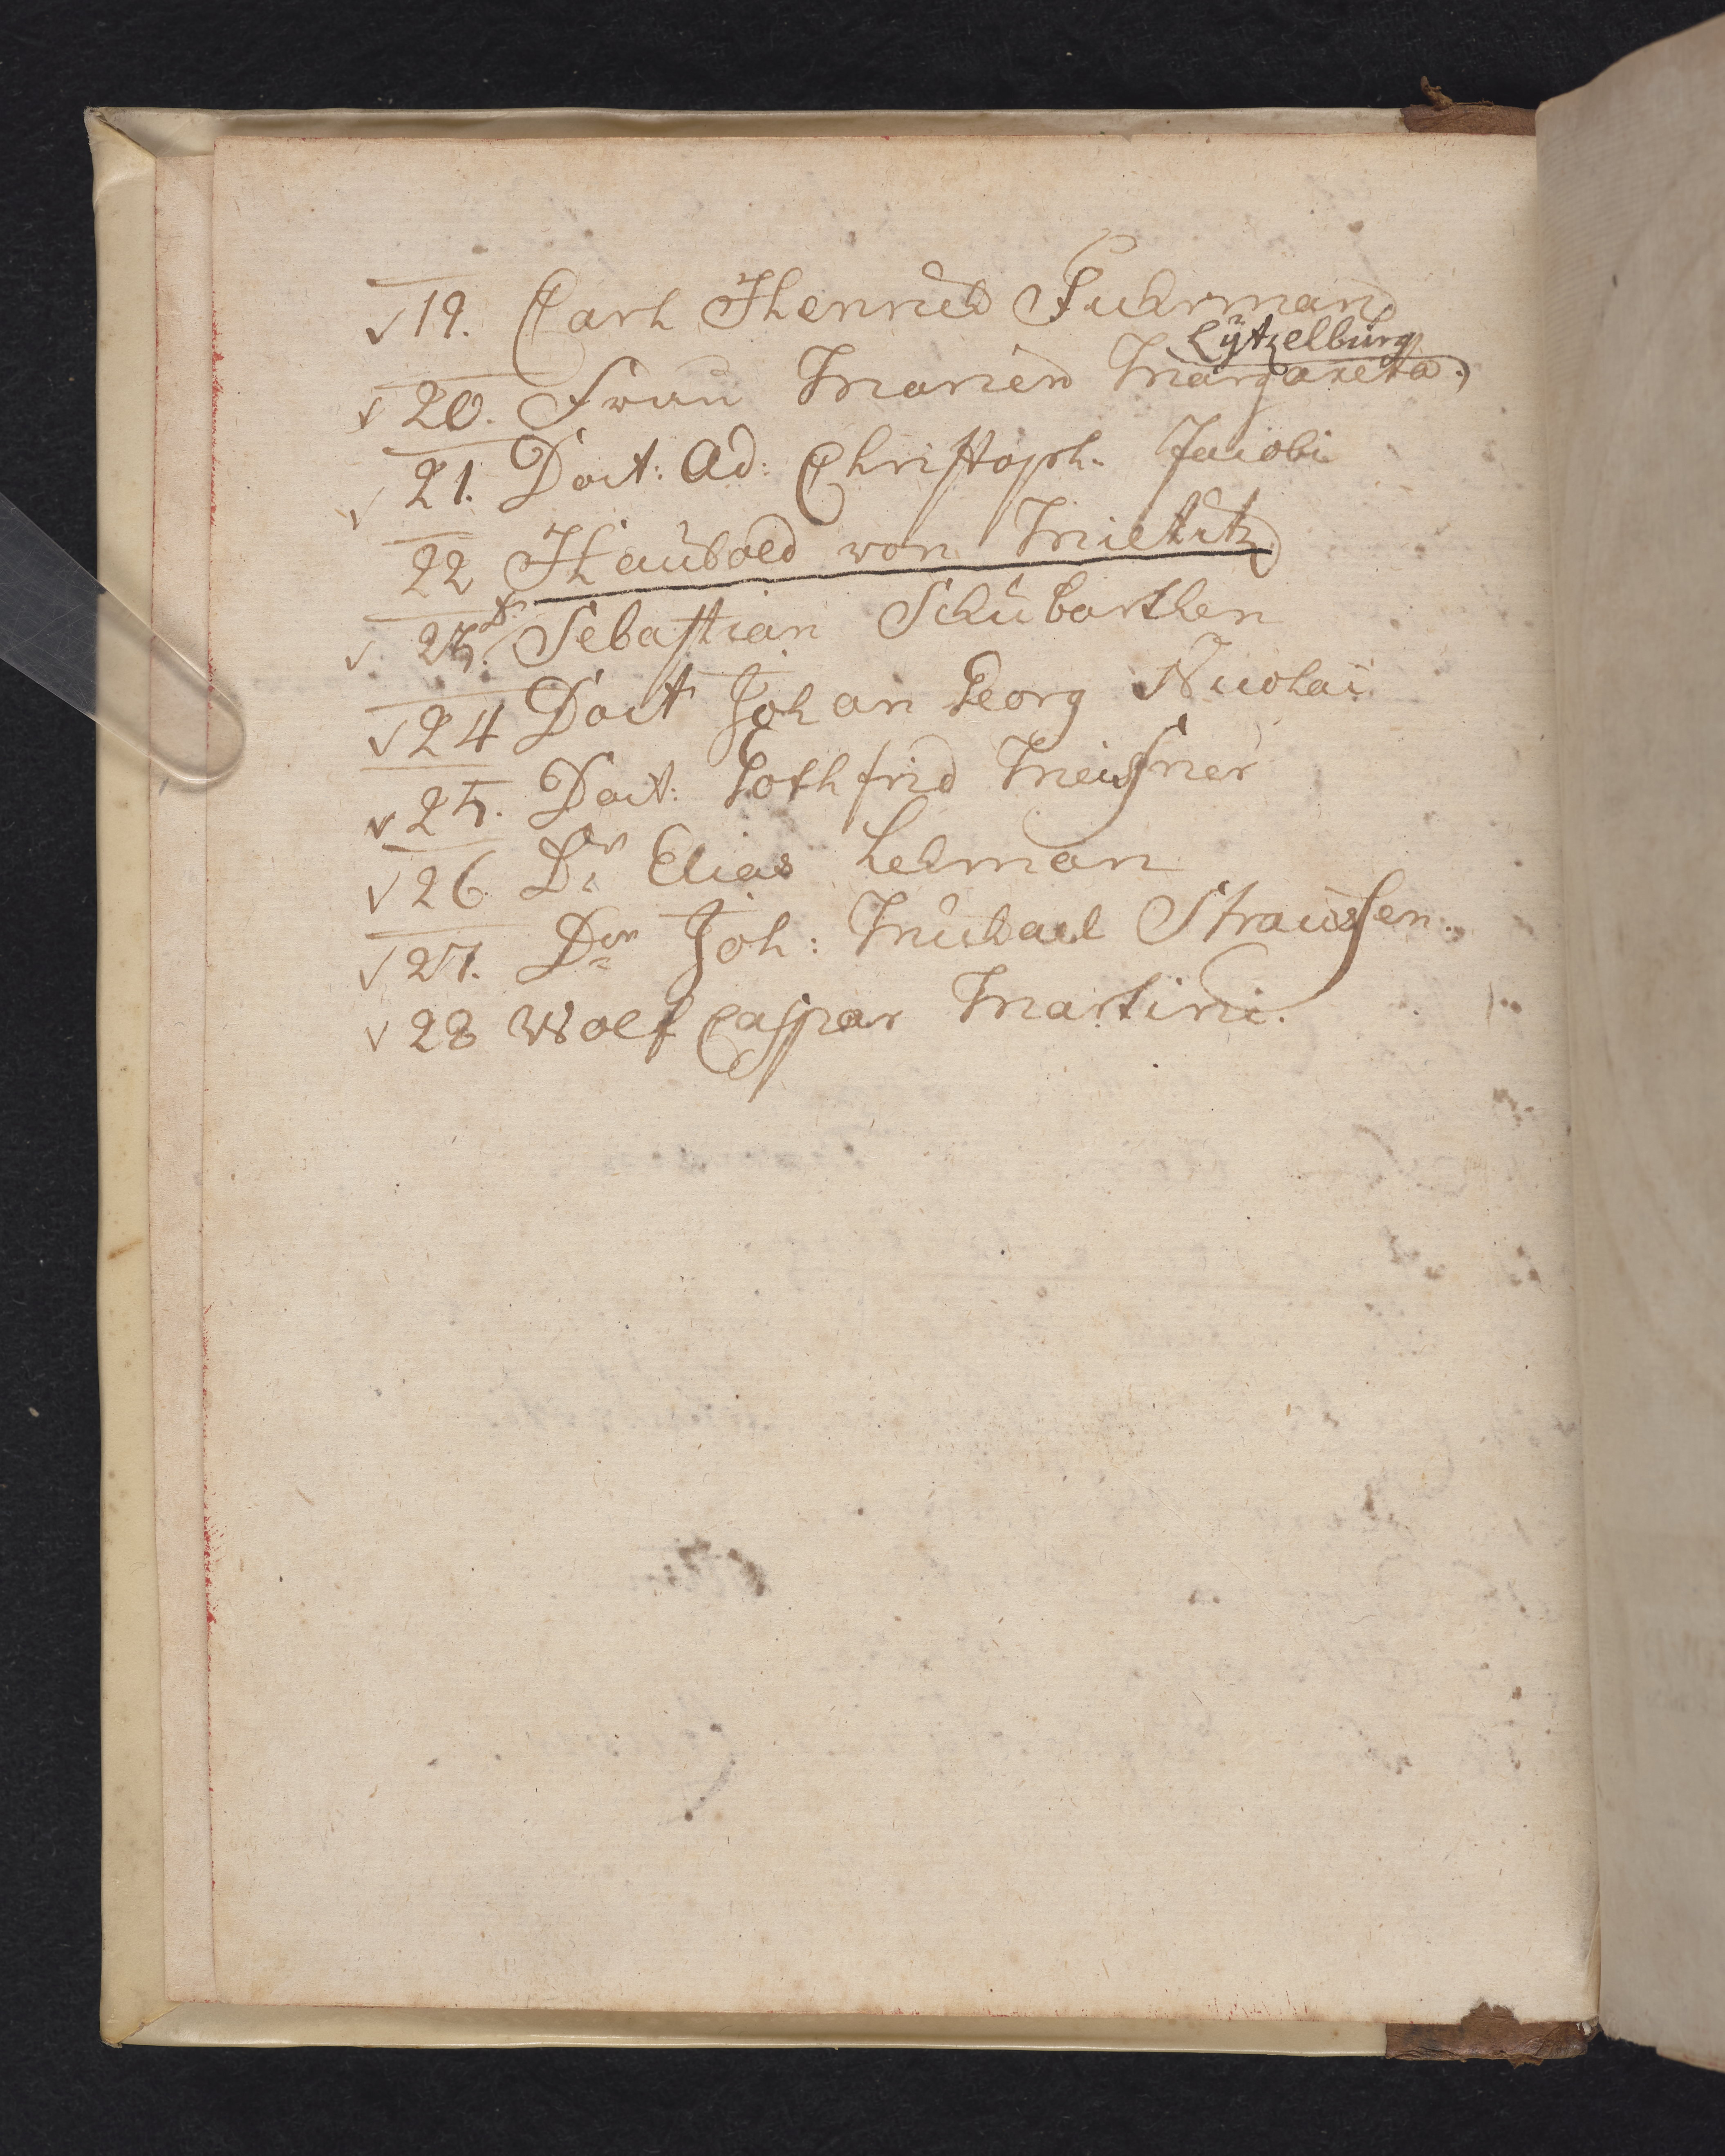 √ 19. Carl Henrich Fuhrman
Lÿtzelburg
√ 20. Frau Marien Margareta.
√ 21. Doct: Ad: Christoph. Jacobi
22 Haubold von Miltitz
√ 23. Dr. Sebastian Schubarthen
√ 24 Doct Johan Georg Nicolai
√ 25. Doct: Gothfrid Meisner
√ 26. Dr Elias Lehman
√ 27. Dr Joh: Michael Straussen.
√ 28 Wolf Caspar Martini.